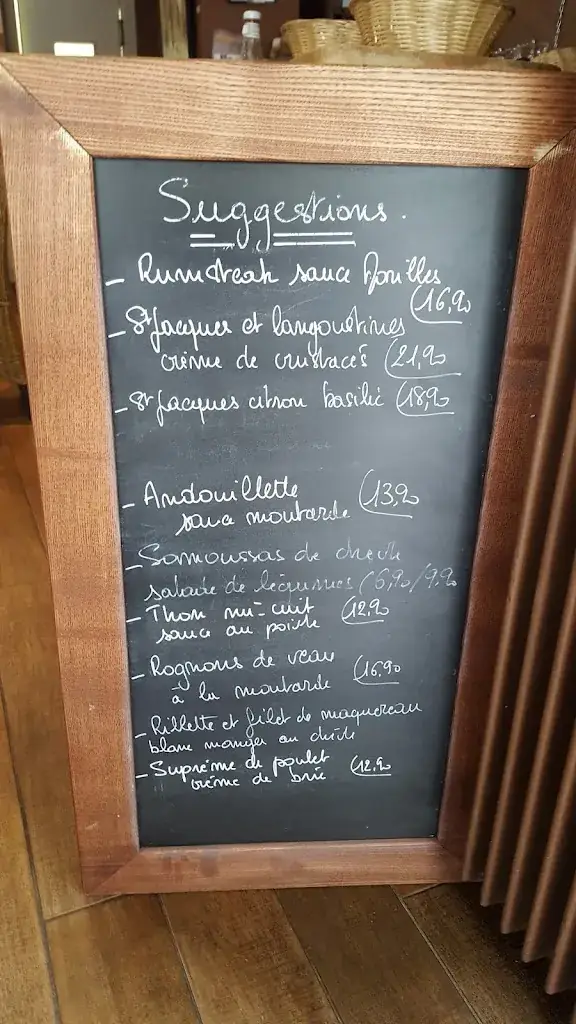 Suggestions.
- Rumsteak sauce Morilles
(16,90
- St Jacques et langoustines
crème de crustacés (21,90
- St Jacques citron basilic (18,90
- Andouillette (13,90
sauce moutarde
- Samoussas de chèvre
salade de légumes (6,90/9,90
- Thon mi-cuit (12,90
sauce au poivre
- Rognons de veau (16,90
à la moutarde
- Rillette et filet de maquereau
blanc manger au chèvre
- Suprême de poulet (12,90
crème de brie